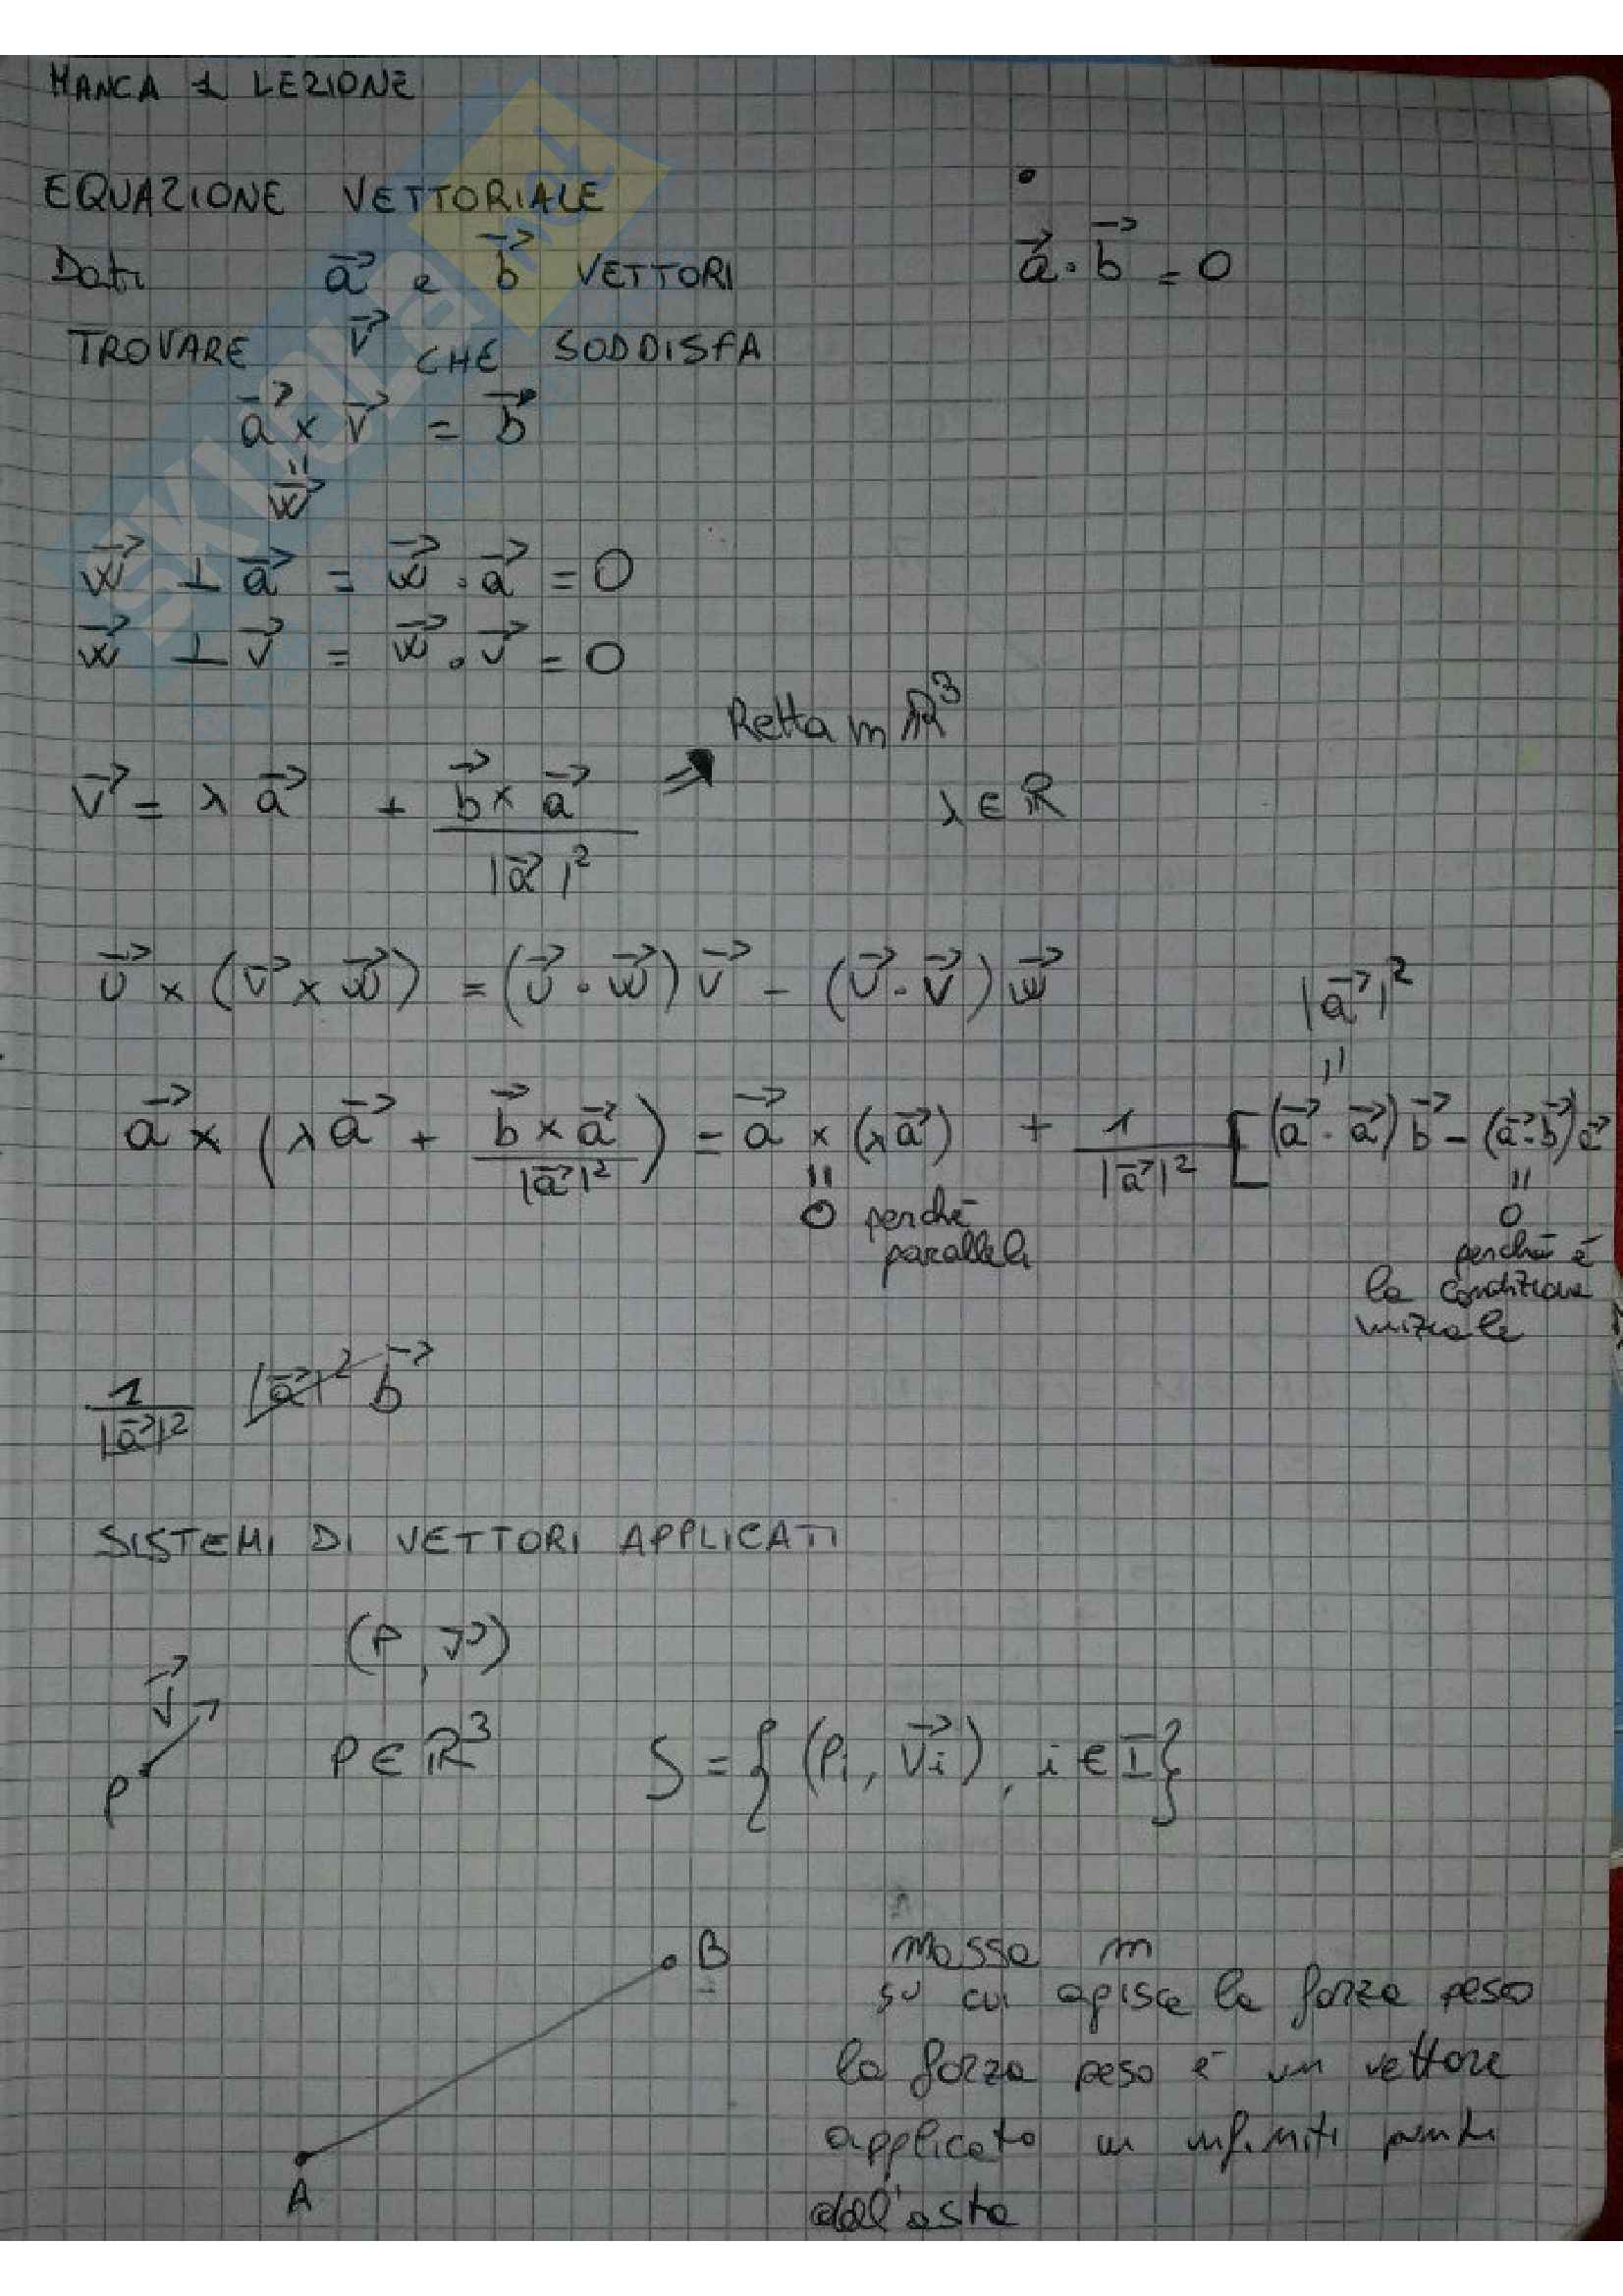 MANCA 1 LEZIONE
EQUAZIONE VETTORIALE
Dati a⃗ e b⃗ VETTORI a⃗ · b⃗ = 0
TROVARE v⃗ CHE SODDISFA
a⃗ × v⃗ = b⃗
"
w⃗
w⃗ ⊥ a⃗ = w⃗ · a⃗ = 0
w⃗ ⊥ v⃗ = w⃗ · v⃗ = 0
v⃗ = λ a⃗ + (b⃗ × a⃗)/|a⃗|² ⇒ Retta in ℝ³ λ ∈ ℝ
u⃗ × (v⃗ × w⃗) = (u⃗ · w⃗) v⃗ − (u⃗ · v⃗) w⃗
|a⃗|²
"
a⃗ × (λ a⃗ + (b⃗ × a⃗)/|a⃗|²) = a⃗ × (λ a⃗) + 1/|a⃗|² [(a⃗ · a⃗) b⃗ − (a⃗ · b⃗) a⃗
" "
0 perché 0
paralleli perché è
la condizione
iniziale
1/|a⃗|² |a⃗|² b⃗
SISTEMI DI VETTORI APPLICATI
(P, v⃗)
v⃗
P
P ∈ ℝ³ S = { (Pi, v⃗i), i ∈ I }
B
A
massa m
su cui agisce la forza peso
la forza peso è un vettore
applicato in infiniti punti
dell'asta
SKUOLA.net